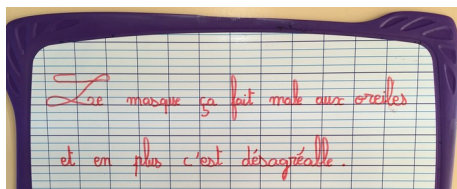 Le masque ça fait male aux oreilles
et en plus c'est désagréalle.